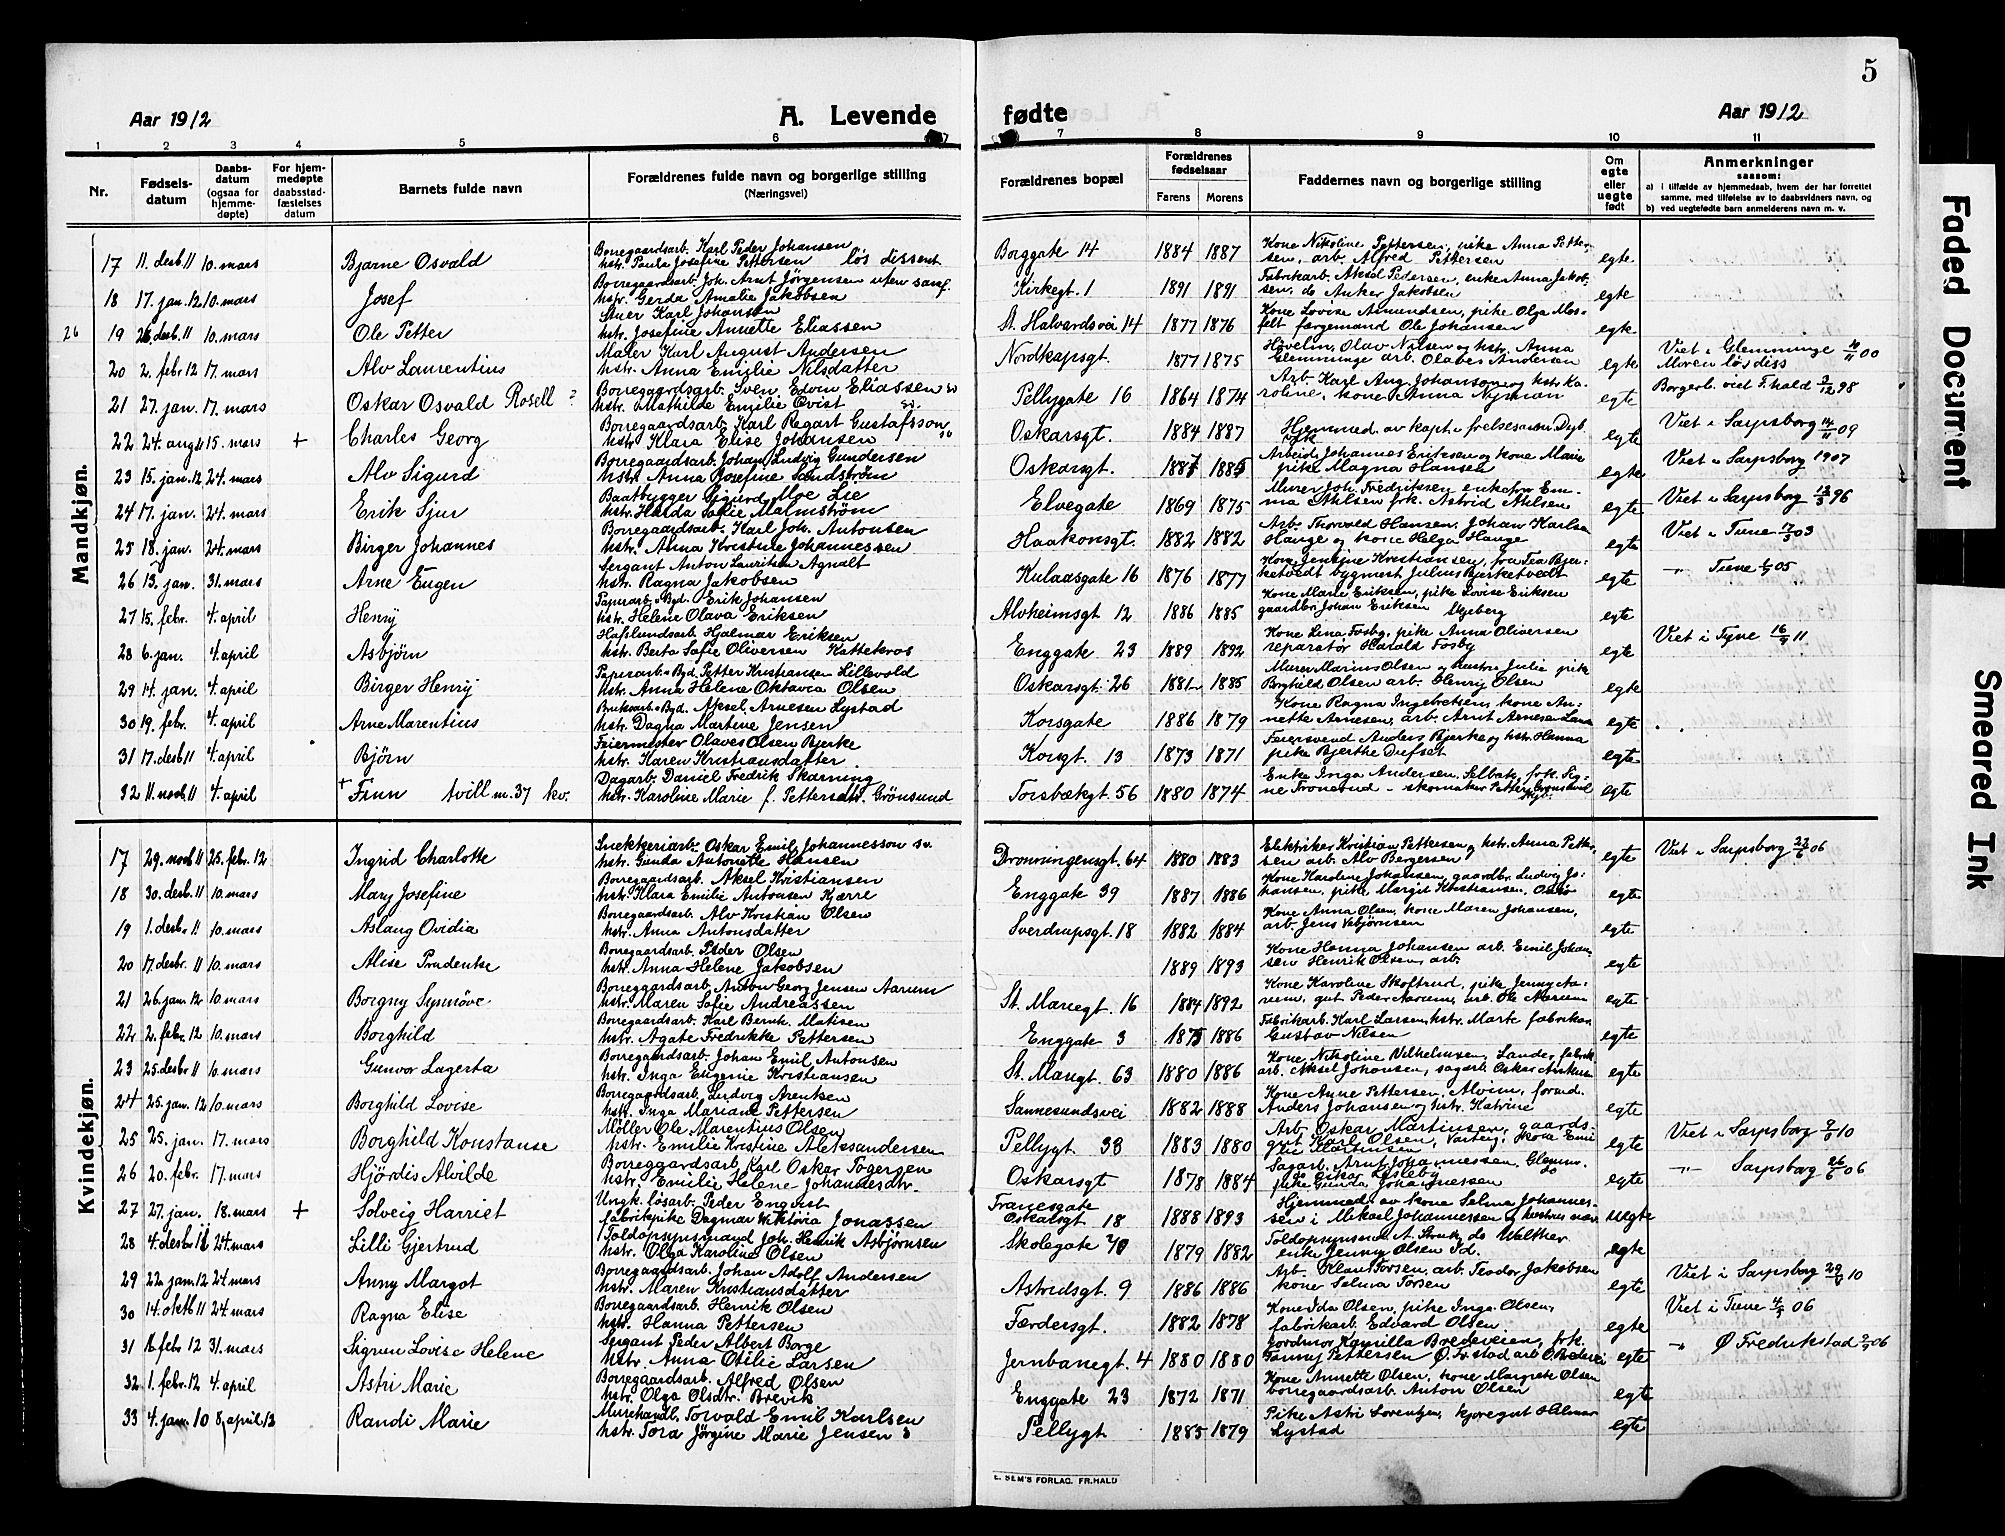 5
Aar 1912
A. Levende
fødte
Aar 1912
1 2 3 4 5 6 7
7 8 9 10 11
Nr.
Fødsels-
datum
Daabs-
datum
(ogsaa for
hjemme-
døpte)
For hjem-
medøpte
daabsstad-
fæstelses
datum
Barnets fulde navn
Forældrenes fulde navn og borgerlige stilling
(Næringsvei)
Forældrenes bopæl
Forældrenes
fødselsaar
Farens Morens
Faddernes navn og borgerlige stilling
Om
egte
eller
uegte
født
Anmerkninger
saasom:
a) i tilfælde av hjemmedaab, hvem der har forrettet
samme, med tilføielse av to daabsvidners navn, og
b) ved uegtefødte barn anmelderens navn m. v.
Mandkjøn.
17 11. desb 11 10. mars Bjarne Osvald Borregaardsarb. Karl Peder Johansen
hstr. Paula Josefine Pettersen løs dissent Borggate 14 1884 1887 Kone Nikoline Pettersen, pike Anna Petter-
sen, arb. Alfred Pettersen egte
18 17. jan. 12 10. mars Josef Borregaardsarb. Joh. Arnt Jörgensen uten samf.
hstr. Gerda Amalie Jakobsen Kirkegt. 1 1891 1891 Fabrikarb. Aksel Pedersen, enke Anna Jakob-
sen, do Anker Jakobsen egte
26 19 26. desb 11 10. mars Ole Petter Stuer Karl Johansen
hstr. Josefine Annette Eliassen St. Halvardsvei 14 1877 1876 Kone Lovise Amundsen, pike Olga Mos-
felt færgemand Ole Johansen egte
20 2. febr 12 17. mars Alv Laurentius Maler Karl August Andersen
hstr. Anna Emilie Nilsdatter Nordkapsgt. 1877 1875 Hövelm. Olav Nilsen og hstr. Anna
Glemminge arb. Olaves Andersen egte Viet i Glemminge 00
Moren løs diss
21 27. jan. 17. mars Oskar Osvald Rosell ? Borregaardsarb. Sven Edvin Eliassen sv
hstr. Mathilde Emilie Qvist sv. Pellygate 16 1864 1874 Arb. Karl Aug. Johanson og hstr. Ka-
roline, kone Anna Nyman egte Borgerl. viet F.hald 2/12 98
22 24. aug 11 15. mars + Charles Georg Borregaardsarb. Karl Ragart Gustafsson
hstr. Klara Elise Johansen sv Oskarsgt. 1884 1887 Hjemmed. av kapt. i frelsesarmeen Dyb.
egte Viet i Sarpsborg 14/11 09
23 15. jan. 12 24. mars Alv Sigurd Borregaardsarb. Johan Ludvig Gundersen
hstr. Anna Josefine Sandström Oskarsgt. 1887 1885 Arbeid. Johannes Eriksen og kone Marie
pike Magna Hansen egte Viet i Sarpsborg 1907
24 17. jan. 24. mars Erik Sjur Baatbygger Sigurd Moe Lie
hstr. Harda Sofie Malmström Elvegate 1869 1875 Murer Joh. Fredriksen enkefru Em-
ma Ahlsen frk. Astrid Ahlsen egte Viet i Sarpsborg 13/3 96
25 18. jan. 24. mars Birger Johannes Borregaardsarb. Karl Joh. Antonsen
hstr. Anna Kristine Johannessen Haakonsgt. 1882 1882 Arb. Thorvald Hansen, Johan Karlsen
Hauge og kone Helga Hauge egte Viet i Tune 03
26 13. jan. 31. mars Arne Eugen Sergant Anton Lauritsen Agnalt
hstr. Ragna Jakobsen Kulaasgate 16 1876 1877 Kone Jenkine Kristiansen, fru Tea Bjer-
ketvedt bygmest Julius Bjerketvedt egte " Tune 05
27 15. febr. 4. april Henry Papirarb. Byd. Erik Johansen
hstr. Helene Olava Eriksen Alvheimsgt 12 1886 1885 Kone Marie Eriksen, pike Lovise Eriksen
gaardbr. Johan Eriksen Skjeberg egte
28 6. jan. 4. april Asbjørn Hafslundsarb. Hjalmar Eriksen
hstr. Berta Sofie Oliversen Kattekros Enggate 23 1889 1892 Kone Lina Fosby, pike Anna Oliversen
reparatör Harald Fosby egte Viet i Tune 16/9 11
29 14. jan. 4. april Birger Henry Papirarb. Byd. Petter Kristiansen Lillevold
hstr. Anna Helene Oktavia Olsen Oskarsgt. 26 1881 1885 Murer Marius Olsen og hustru Julie pike
Borghild Olsen arb. Henry Olsen egte
30 19. febr. 4. april Arne Marentius Bruksarb. Byd. Aksel Arnesen Lystad
hstr. Dagna Martine Jensen Korsgate 1886 1879 Kone Ragna Ingebretsen, kone An-
nette Arnesen, arb. Arnt Arnesen egte
31 17. desb 11 4. april Bjørn Feiermester Olaves Olsen Bjerke
hstr. Karen Kristiansdatter Korsgt. 13 1873 1871 Feiersvend Anders Bjerke og hstr. Hanna
pike Bjerthe Dufset egte
32 11. novb 11 4. april + Finn tvill m. 37 kv. Dagarb. Daniel Fredrik Skarning
hstr. Karoline Marie f. Pettersdtr. Grönsund Torsbækgt. 56 1880 1874 Enke Inga Andersen, Selbak, frk. Sig-
ne Tronerud - skomaker Petter Grönsund egte
Kvindekjøn.
17 29. novb 11 25. febr. 12 Ingrid Charlotte Snekkeriarb. Oskar Emil Johannesson sv.
hstr. Gunda Antonette Hansen Dronningensgt. 64 1880 1883 Elektriker Kristian Pettersen og hstr. Anna Petter-
sen arb. Alv Bergersen egte Viet i Sarpsborg 23/6 06
18 30. desb 11 10. mars Mary Josefine Borregaardsarb. Aksel Kristiansen
hstr. Klara Emilie Antonsen Kjærre Enggate 39 1887 1886 Kone Karoline Johansen, gaardbr. Ludvig Jo-
hansen, pike Margit Kristiansen, Onsö egte
19 1. desb. 11 10. mars Aslaug Ovidia Borregaardsarb. Alv Kristian Olsen
hstr. Anna Antonsdatter Sverdrupsgt. 18 1882 1884 Kone Anna Olsen, kone Maren Johansen,
arb. Jens Vebjørnsen egte
20 17. desbr 11 10. mars Alise Prudentse Borregaardsarb. Peder Olsen
hstr. Anna Helene Jakobsen 1889 1893 Kone Hanna Johansen arb. Emil Johan-
sen Henrik Olsen arb. egte
21 26. jan. 12 10. mars Borgny Synnöve Borregaardsarb. Anton Georg Jensen Aarum
hstr. Maren Sofie Andreassen St. Mariegt. 16 1884 1892 Kone Karoline Skoftrud, pike Jenny Aa-
rum, gut Peder Aarum, arb. Ole Aarum egte
22 2. febr. 12 10. mars Borghild Borregaardsarb. Karl Bernh. Matisen
hstr. Agate Fredrikke Pettersen Enggate 3 1875 1886 Fabrikarb. Karl Larsen, hstr. Marte fabrikar.
Gustav Nilsen egte
23 25. desbr 11 10. mars Gunvor Lagerta Borregaardsarb. Johan Emil Antonsen
hstr. Inga Eugenie Kristiansen St. Mariegt. 63 1880 1886 Kone Nikoline Vilhelmsen, Lande, fabrik
arb. Aksel Johansen, sagarb. Oskar Antonsen egte
24 25. jan. 12 10. mars Borghild Lovise Borregaardsarb. Ludvig Arentsen
hstr. Inga Mariane Pettersen Sannesundsvei 1882 1888 Kone Anne Pettersen, Alvim, forad.
Anders Johansen og hstr. Katrine egte
25 25. jan. 17. mars Borghild Konstanse Møller Ole Marentius Olsen
hstr. Emilie Kristine Aleksandersen Pellygt. 33 1883 1880 Arb. Oskar Martinsen, gaards-
gut Karl Olsen, Varteig, kone Emi
lie Martinsen egte Viet i Sarpsborg 10
26 20. febr. 17. mars Hjördis Alvilde Borregaardsarb. Karl Oskar Togersen
hstr. Emilie Helene Johannesdtr. Oskarsgt 1878 1884 Sagarb. Arnt Johannessen, Glemm.
pike Gunda Johannessen egte " Sarpsborg 26/6 06
27 27. jan. 18. mars + Solveig Harriet Ungk. løsarb. Peder Enqvist
fabrikpike Dagmar Viktoria Jonassen Oskarsgt 18 1888 1893 Hjemmed av kone Selma Johannes-
sen i Mikael Johannessen og hustrus nærv uegte
28 4. desbr 11 24. mars Lilli Gjertrud Toldopsynsmand Joh. Henrik Asbjørnsen
hstr. Olga Karoline Olsen Skolegate 40 1879 1882 Toldopsynsm. A. do Walther
enke Jenny Olsen Id. egte
29 22. jan. 12 24 mars Anny Margot Borregaardsarb. Johan Adolf Andersen
hstr. Maren Kristiansdatter Astridsgt. 9 1886 1886 Arb. Klaus Torsen, arb. Teodor Jakobsen
kone Selma Torsen egte Viet i Sarpsborg 10
30 14. oktb 11 24. mars Ragna Elise Borregaardsarb. Henrik Olsen
hstr. Hanna Pettersen Færdersgt. 1882 1878 Kone Ida Olsen, pike Inga Olsen,
fabrikarb. Edvard Olsen egte Viet i Tune 06
31 16. febr 12 31. mars Sigrun Lovise Helene Sergant Peder Albert Borge
hstr. Anna Otilie Larsen Jernbanegt. 4 1880 1880 Jordmor Kamilla Bredeveien, frk.
Fanny Pettersen Ø. Fr.stad arb O. Bredevei egte " Ø Fredrikstad 06
32 1. febr. 12 4. april Astri Marie Borregaardsarb. Alfred Olsen
hstr. Olga Olsdtr. Brevik Enggate 23 1872 1871 Kone Annette Olsen, kone Margrete Olsen
borregaardsarb. Anton Olsen egte
33 4. jan. 10 8. april 12 Randi Marie Murehandl. Torvald Emil Karlsen
hstr. Tora Jörgine Marie Jensen Pellygt 1885 1879 Pike Astri Lorentzen, kjøregut Hilmar
Lystad egte
E. SEM'S FORLAG, FR.HALD
Faded Document
Smeared Ink